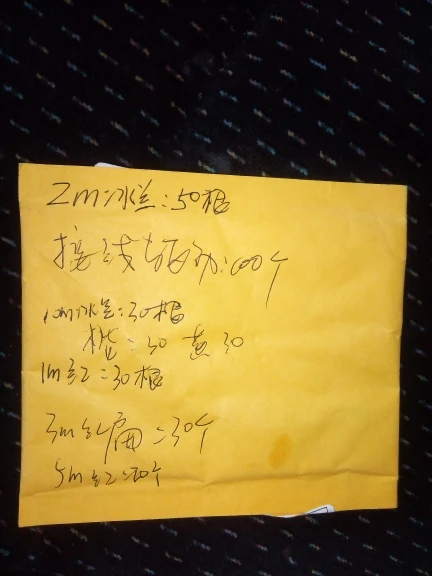 2m冰兰:50根
接线 100个
10m冰兰:30根
橙:30 黄30
1m红=30根
3m红扁=30个
5m红=20个